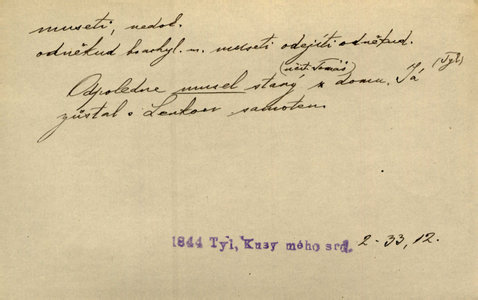 museti, nedok.
odněkud n. museti odejíti odněkud.
(něst. Tomáš) (Tyl)
Odpoledne musel starý z domu. Já
zůstal s Lenkou samoten
1844 Tyl, Kusy mého srd. 2-33, 12.